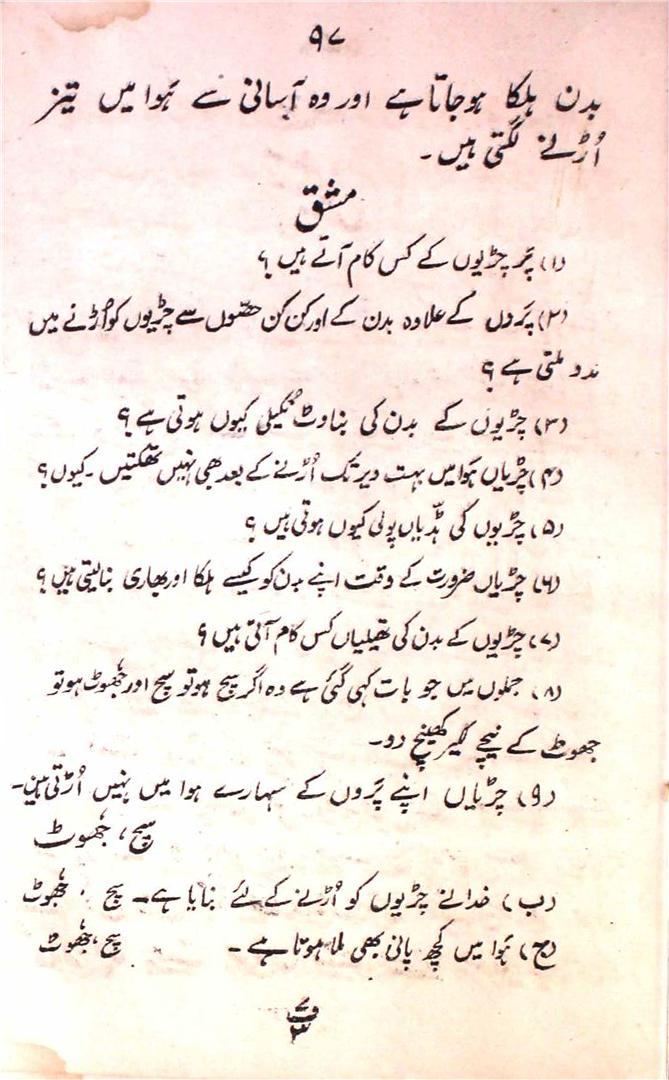 ۹۷
بدن ہلکا ہوجاتا ہے اور وہ آسانی سے ہَوا میں تیز
اُڑنے لگتی ہیں۔
مشق
(۱) پَر چڑیوں کے کس کام آتے ہیں ؟
(۲) پَروں کے علاوہ بدن کے اور کن کن حصّوں سے چڑیوں کو اُڑنے میں
مدد ملتی ہے ؟
(۳) چڑیوں کے بدن کی بناوٹ نُکیلی کیوں ہوتی ہے ؟
(۴) چڑیاں ہَوا میں بہت دیر تک اُڑنے کے بعد بھی نہیں تھکتیں۔ کیوں ؟
(۵) چڑیوں کی ہڈّیاں پولی کیوں ہوتی ہیں ؟
(۶) چڑیاں ضرورت کے وقت اپنے بدن کو کیسے ہلکا اور بھاری بنالیتی ہیں ؟
(۷) چڑیوں کے بدن کی تھیلیاں کس کام آتی ہیں ؟
(۸) جملوں میں جو بات کہی گئی ہے وہ اگر سچ ہو تو سچ اور جھُوٹ ہو تو
جھوٹ کے نیچے لکیر کھینچ دو۔
(۹) چڑیاں اپنے پَروں کے سہارے ہوا میں نہیں اُڑتی ہیں۔
سچ ، جھُوٹ
(ب) خدا نے چڑیوں کو اُڑنے کے لئے بنایا ہے۔ سچ ، جھُوٹ
(ج) ہَوا میں کچھ پانی بھی ملا ہوتا ہے ۔ سچ ، جھُوٹ